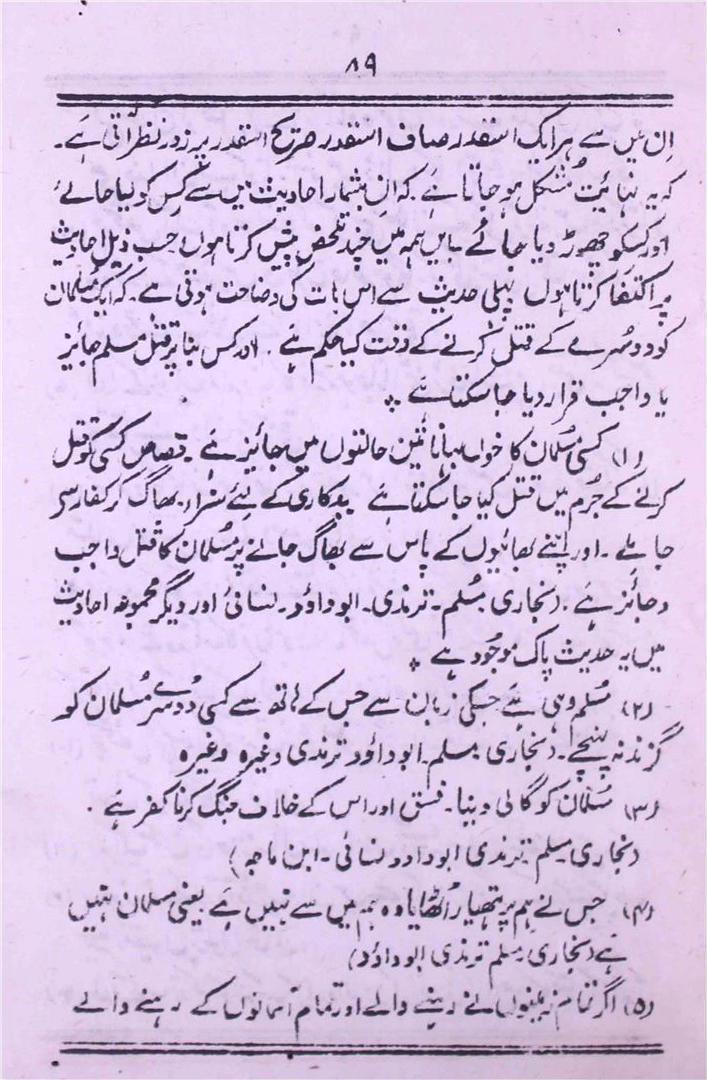 ۸۹
اِن میں سے ہر ایک اسقدر صاف اسقدر صریح اسقدر پر زور نظر آتی ہے۔
کہ یہ نہائیت مُشکل ہو جاتا ہے کہ اِن بیشمار احادیث میں سے کِس کو لیا جائے
اور کسکو چھوڑ دیا جائے بایں ہمہ میں چند پیش کرتا ہوں حسب ذیل احادیث
پر اکتفا کرتا ہوں پہلی حدیث سے اس بات کی وضاحت ہوتی ہے۔ کہ ایک مُسلمان
کو دوسرے کے قتل کرنے کے وقت کیا حکم ہے ۔ اور کس بنا پر قتل مسلم جائیز
یا واجب قرار دیا جا سکتا ہے ۔
(۱) کسی مُسلمان کا خون بہانا تین حالتوں میں جائیز ہے ۔ قصاص کسی کو قتل
کرنے کے جُرم میں قتل کیا جا سکتا ہے بدکاری کے لئے سزاء۔ بھاگ کر کفار سے
جا ملے ۔ اور اپنے بھائیوں کے پاس سے بھاگ جانے پر مُسلمان کا قتل واجب
و جائز ہے ۔ (بخاری ۔ مُسلم ۔ ترمذی ۔ ابو داؤد ۔ نسائی اور دیگر مجموعہ احادیث
میں یہ حدیث پاک موجُود ہے ۔
(۲) مُسلم وہی ہے جسکی زبان سے جس کے ہاتھ سے کسی دوسرے مُسلمان کو
گزند نہ پہنچے۔ (بخاری ۔ مسلم ۔ ابو داؤد ترمذی وغیرہ وغیرہ
(۳) مُسلمان کو گالی دینا ۔ فسق اور اس کے خلاف جنگ کرنا کفر ہے ۔
(بخاری ۔ مسلم ۔ ترمذی ابو داود نسائی ۔ ابن ماجہ)
(۴) جس نے ہم پر ہتھیار اُٹھایا وہ ہم میں سے نہیں ہے یعنی مسلمان نہیں
ہے (بخاری ۔ مسلم ترمذی ابو داؤد)
(۵) اگر تمام زمینوں نے رہنے والے اور تمام آسمانوں کے رہنے والے